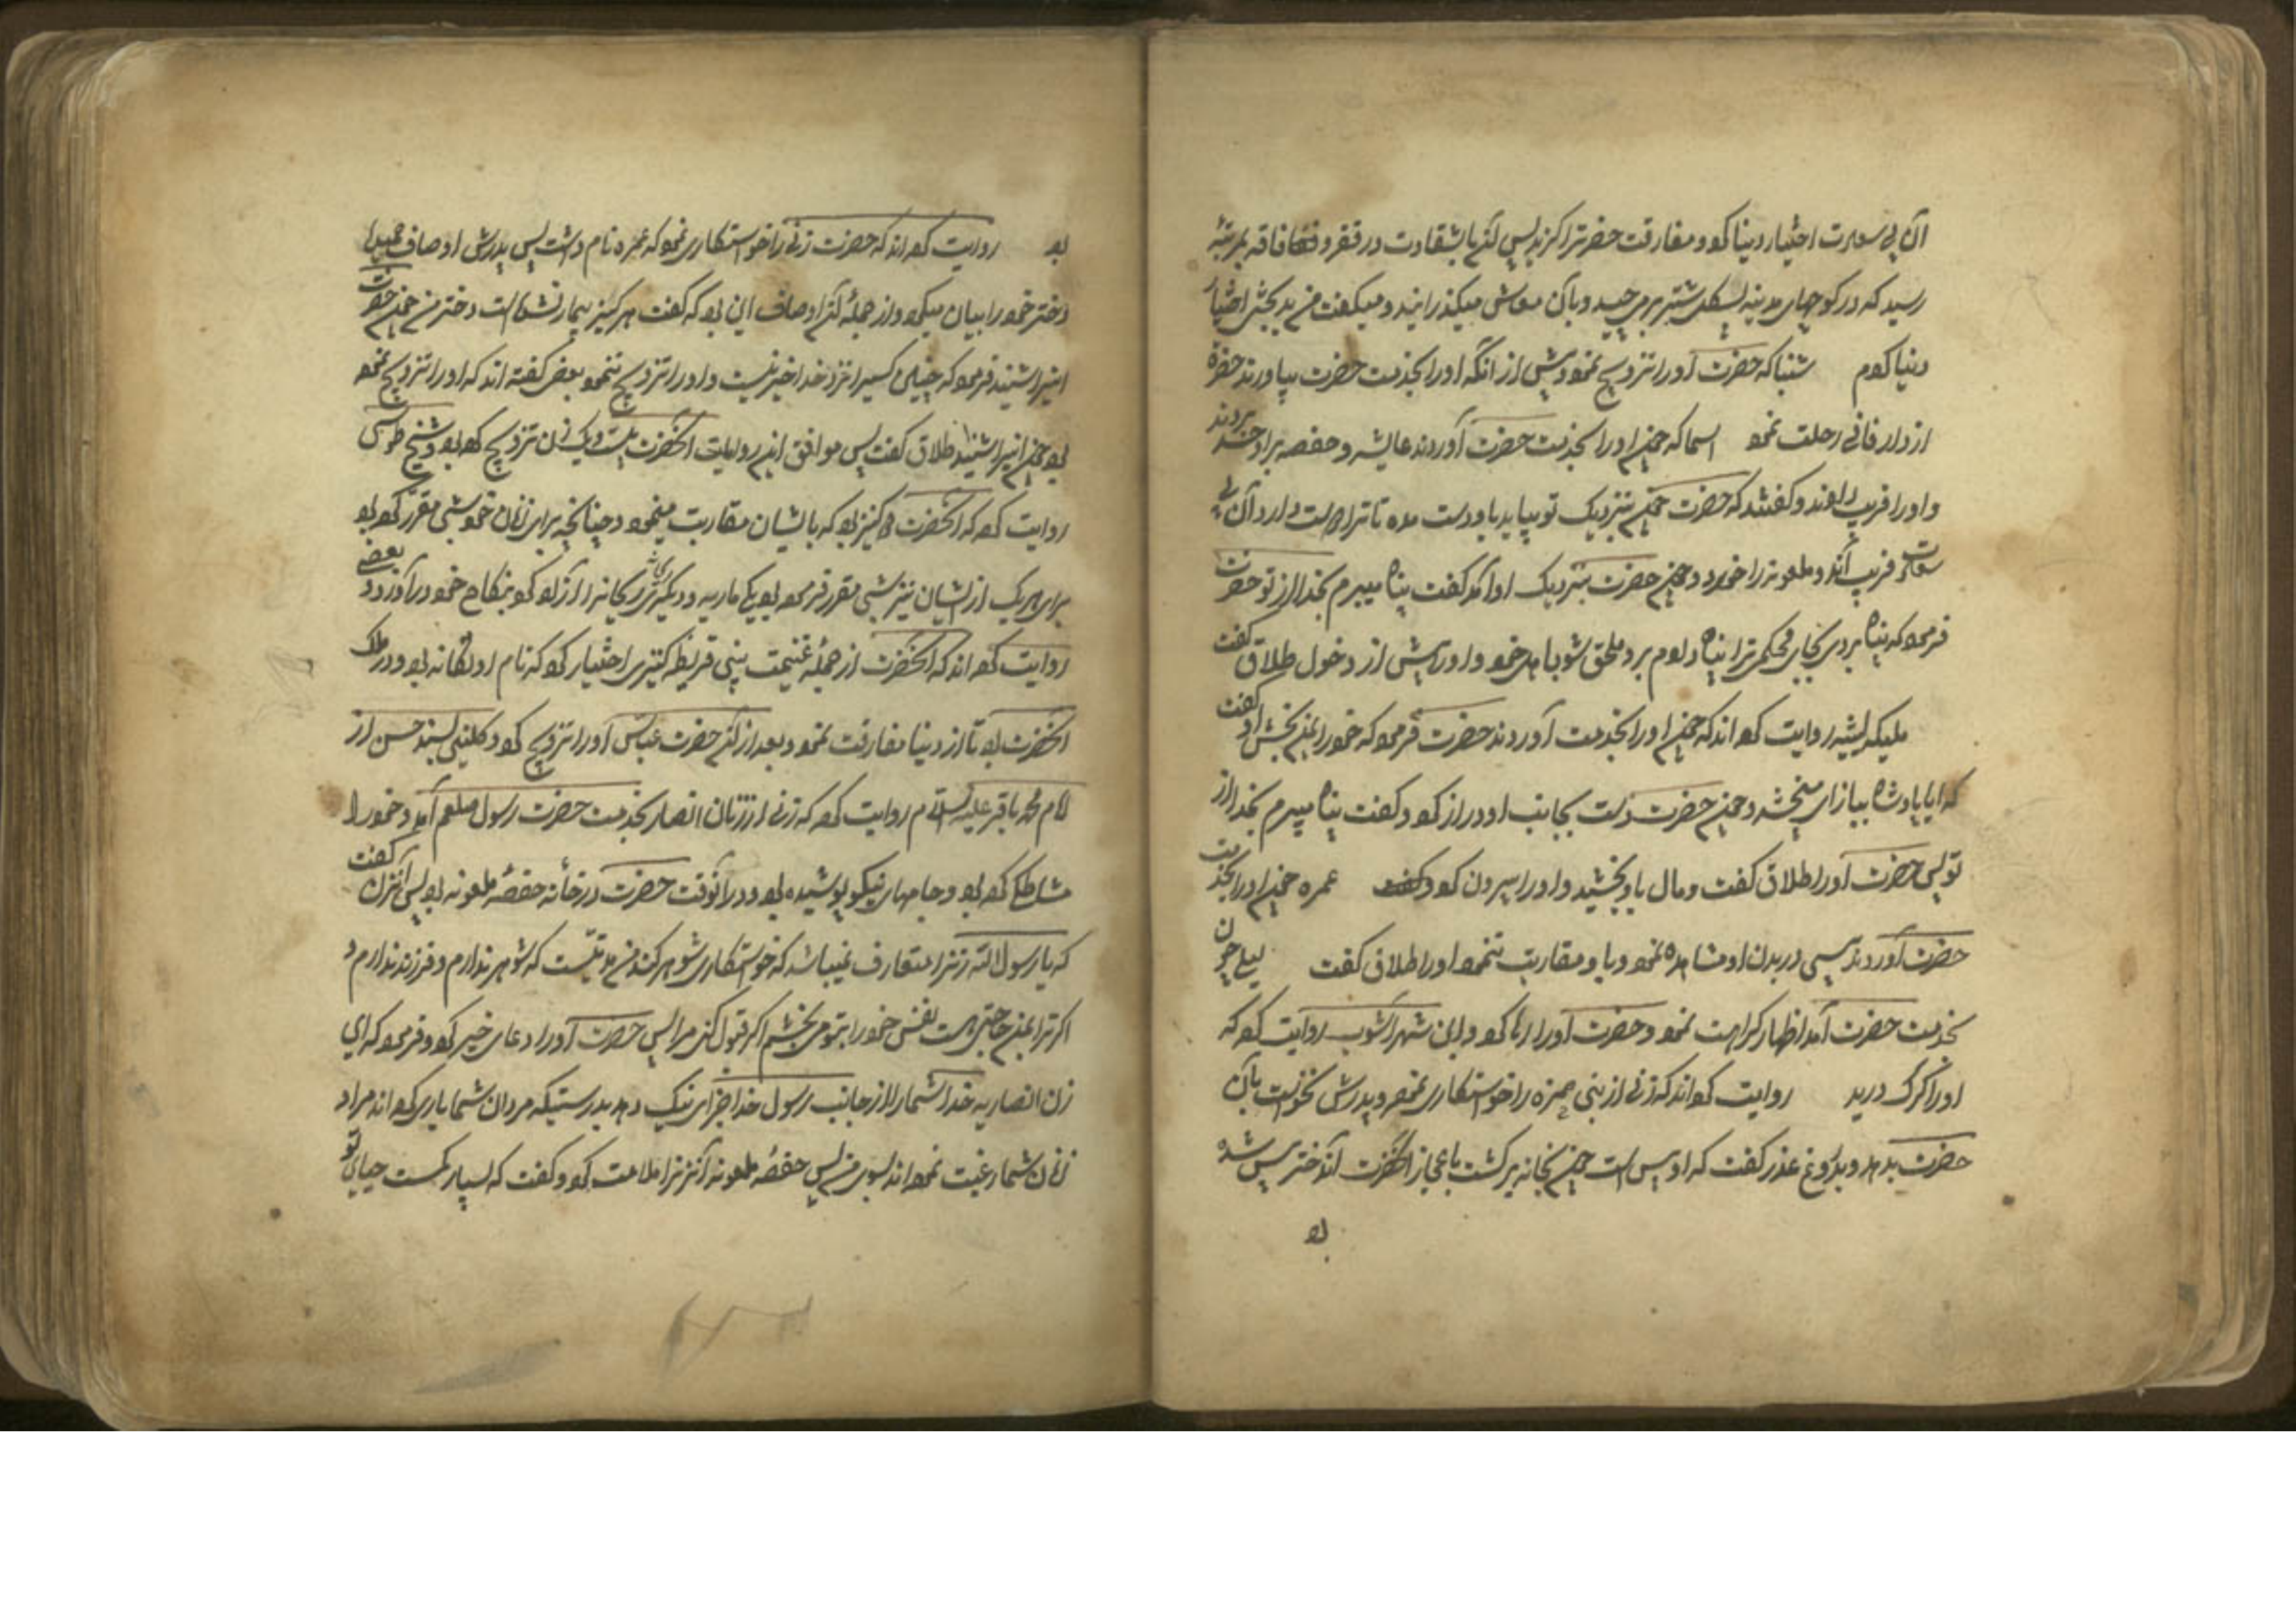 آن بی سعادت اختیار دنیا کرد و مفارقت حضرترا کزید پس آنزن باشقاوت در فقر و فاقه بمرتبه
رسید که در کوچهای مدینه پشکل شتر بر می چید و بآن معاش میکذرانید و میکفت من بدبختی اختیار
دنیا کردم شنبا که حضرت اورا تزویج نمود پیش از آنکه اورا بخدمت حضرت بیاورند حضرة
از دار فانی رحلت نمود اسما که چون اورا بخدمت حضرت آوردند عایشه و حفصه بر او حسد بردند
و اورا فریب دادند و کفتند که حضرت چون بنزدیک تو بیاید باو دست مده تا ترا دوست دارد آن بی
سعادت فریب آندو ملعونه را خورد و چون حضرت بنزدیک او آمد کفت پناه میبرم بخدا از تو حضرت
فرمود که پناه بردی بجای محکمی ترا پناه دادم برو ملحق شو باهل خود و اورا پیش از دخول طلاق کفت
ملیکه لیثیه روایت کرده اند که چون اورا بخدمت آوردند حضرت فرمود که خود را بمن بخش او کفت
که ایا پادشاه ببازاری میبخشد و چون حضرت دست بجانب او دراز کرد کفت پناه میبرم بخدا از
تو پس حضرت اورا طلاق کفت و مال باو بخشید و اورا بیرون کرد عمره چون اورا بخدمت
حضرت آوردند پیسی در بدن او مشاهده نمود و با او مقاربت ننمود اورا طلاق کفت لیلی چون
بخدمت حضرت آمد اظهار کراهت نمود و حضرت اورا رها کرد و ابن شهرآشوب روایت کرده که
اورا کرک درید روایت کرده اند که زنی از بنی مره را خواستکاری نمود و پدرش نخواست بآن
حضرت بدهد و بدروغ عذر کفت که او پیس است چون بخانه برکشت باعجاز آنحضرت آندختر پیس شده
بود
بود روایت کرده اند که حضرت زنی را خواستکاری نمود که عمره نام داشت پس پدرش اوصاف حمیده
دختر خود را بیان میکرد و از جمله آن اوصاف این بود که کفت هرکز بیمار نشده است دختر من چون حضرت
اینرا شنید فرمود که چنین کسیرا نزد خدا خیر نیست و اورا تزویج ننمود بعضی کفته اند که اورا تزویج نموده
بود چون اینرا شنید طلاق کفت پس موافق این روایات آنحضرت بیست و یک زن تزویج کرده بود و شیخ طوسی
روایت کرده که آنحضرت دو کنیز بود که با ایشان مقاربت مینمود و چنانچه برای زنان خود شبی مقرر کرده بود
برای هر یک از ایشان نیز شبی مقرر فرموده بود یکی ماریه و دیکری ریحانه را آزاد کرد بنکاح خود درآورد و بعضی
روایت کرده اند که آنحضرت از جمله غنیمت بنی قریظه کنیزی اختیار کرد که نام او تکانه بود و در ملک
آنحضرت بود تا از دنیا مفارقت نمود و بعد از آن حضرت عباس اورا تزویج کرد و کلینی بسند حسن از
امام محمد باقر علیه السلام روایت کرده که زنی از زنان انصار بخدمت حضرت رسول صلعم آمد و خود را
مشاطکی کرده بود و جامهای نیکو پوشیده بود و در آنوقت حضرت در خانه حفصه ملعونه بود پس آنزن کفت
که یا رسول الله زنرا متعارف نمیباشد که خواستکاری شوهر کند من مدتیست که شوهر ندارم و فرزند ندارم و
اکر ترا بمن حاجتی هست نفس خود را بتو می بخشم اکر قبول کنی مرا پس حضرت اورا دعای خیر کرد و فرمود که ای
زن انصاریه خدا شما را از جانب رسول خدا جزای نیک دهد بدرستیکه مردان شما یاری کرده اند مرا و
زنان شما رغبت نموده اند بسوی من پس حفصه ملعونه آنزنرا ملامت کرد و کفت که بسیار کمست حیای تو